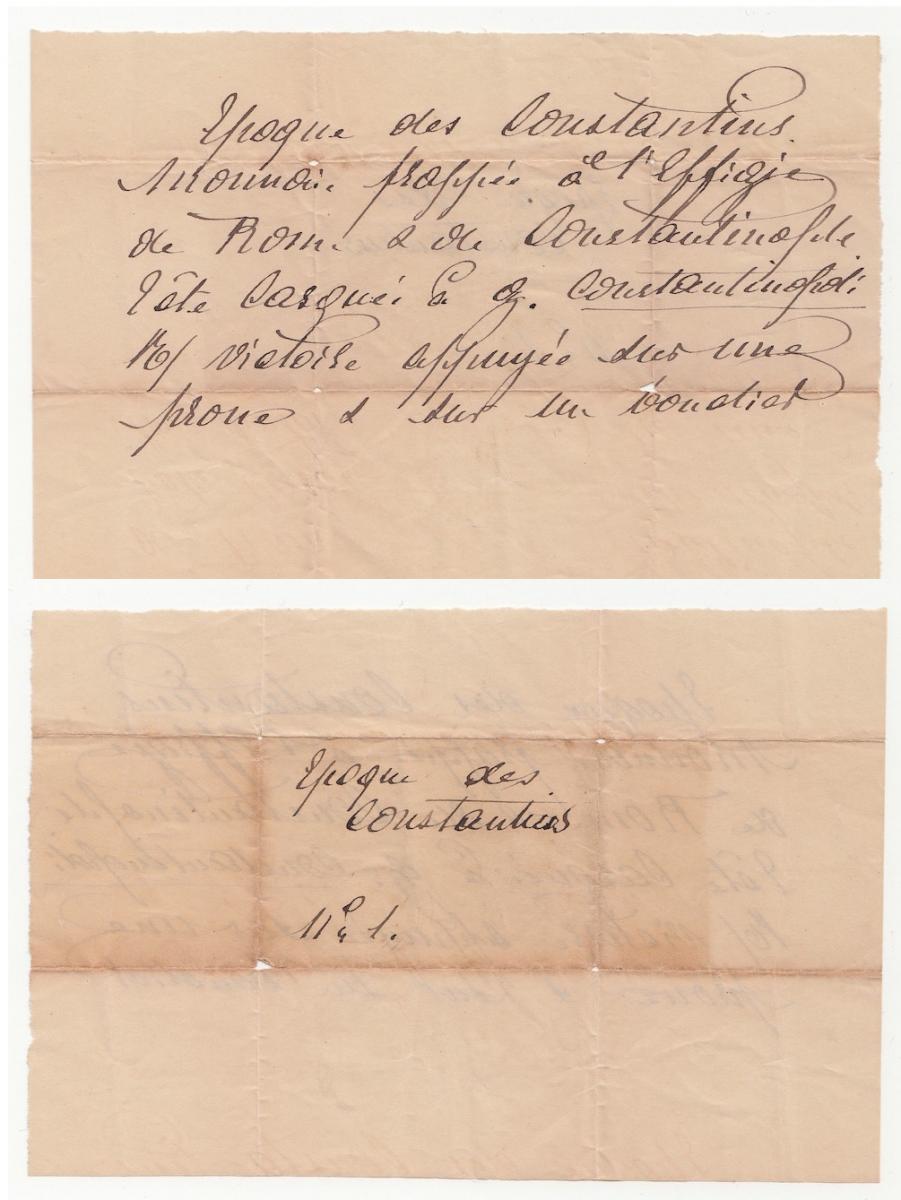 Epoque des Constantins
Monnaie frappée à l'Effigie
de Rome & de Constantinople
Tête Casquée à g. Constantinopoli
R/ victoire appuyée sur une
proue & sur un bouclier
Epoque des
Constantins
N° 1.